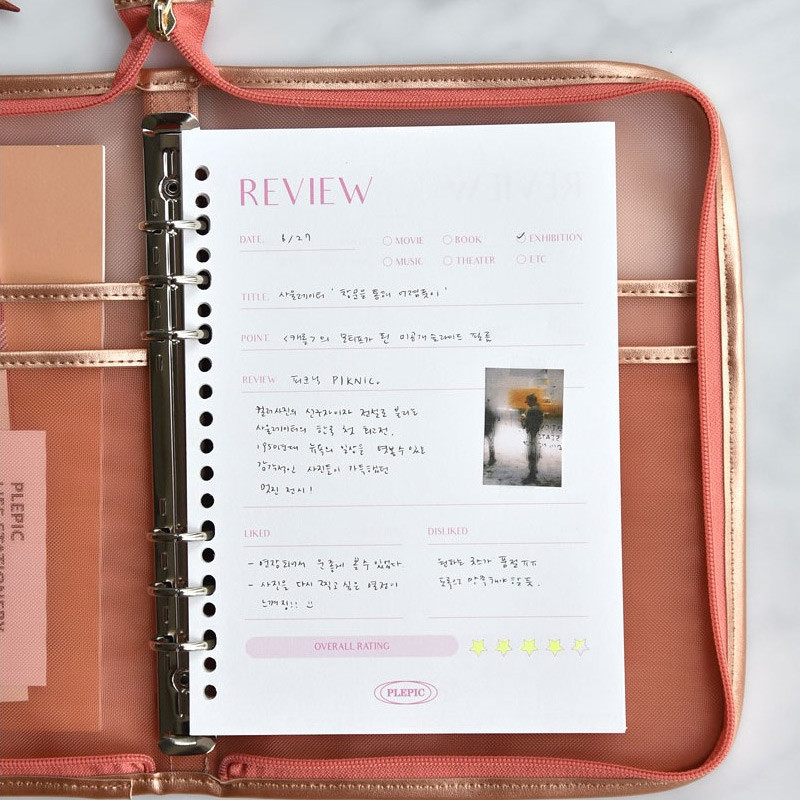 REVIEW
DATE. 6/27
MOVIE BOOK EXHIBITION
MUSIC THEATER ETC
TITLE. 사울레이터 '창문을 통해 어렴풋이'
POINT. <캐롤>의 모티프가 된 미공개 슬라이드 필름
REVIEW 피크닉 PIKNIC.
컬러사진의 선구자이자 전설로 불리는
사울레이터의 한국 첫 회고전.
1950년대 뉴욕의 일상을 엿볼 수 있는
감각적인 사진들이 가득했던
멋진 전시!
LIKED
- 연장되어서 운좋게 볼 수 있었다
- 사진을 다시 찍고 싶은 열정이
느껴짐!!
DISLIKED
원하는 굿즈가 품절ㅠㅠ
도록으로 만족해야 할 듯.
OVERALL RATING
PLEPIC
PLEPIC
LIFE STATIONERY